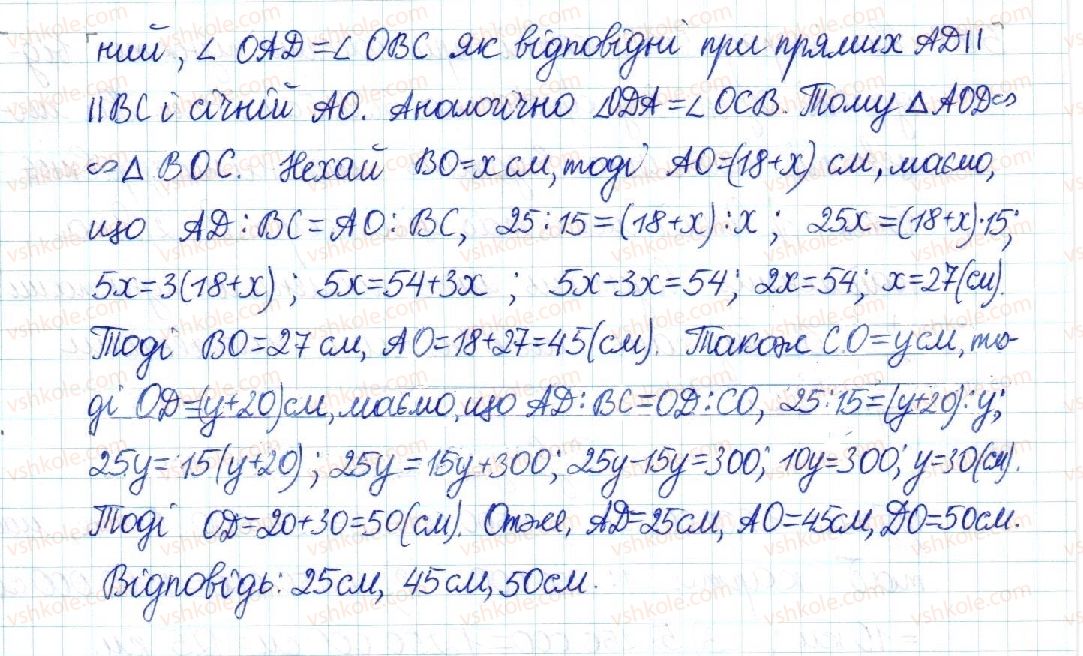 ний, ∠ OAD = ∠ OBC як відповідні при прямих AD ||
|| BC і січній AO. Аналогічно ∠ODA = ∠ OCB. Тому △ AOD ∽
∽ △ BOC. Нехай BO = x см, тоді AO = (18+x) см, маємо,
що AD : BC = AO : BC, 25 : 15 = (18+x) : x ; 25x = (18+x)·15;
5x = 3(18+x) ; 5x = 54+3x ; 5x-3x = 54; 2x = 54; x = 27(см).
Тоді BO = 27 см, AO = 18+27 = 45(см). Також CO = y см, то-
ді OD = (y+20) см, маємо, що AD : BC = OD : CO, 25 : 15 = (y+20) : y;
25y = 15(y+20) ; 25y = 15y+300; 25y-15y = 300; 10y = 300; y = 30(см).
Тоді OD = 20+30 = 50(см). Отже, AD = 25см, AO = 45см, DO = 50см.
Відповідь: 25см, 45см, 50см.